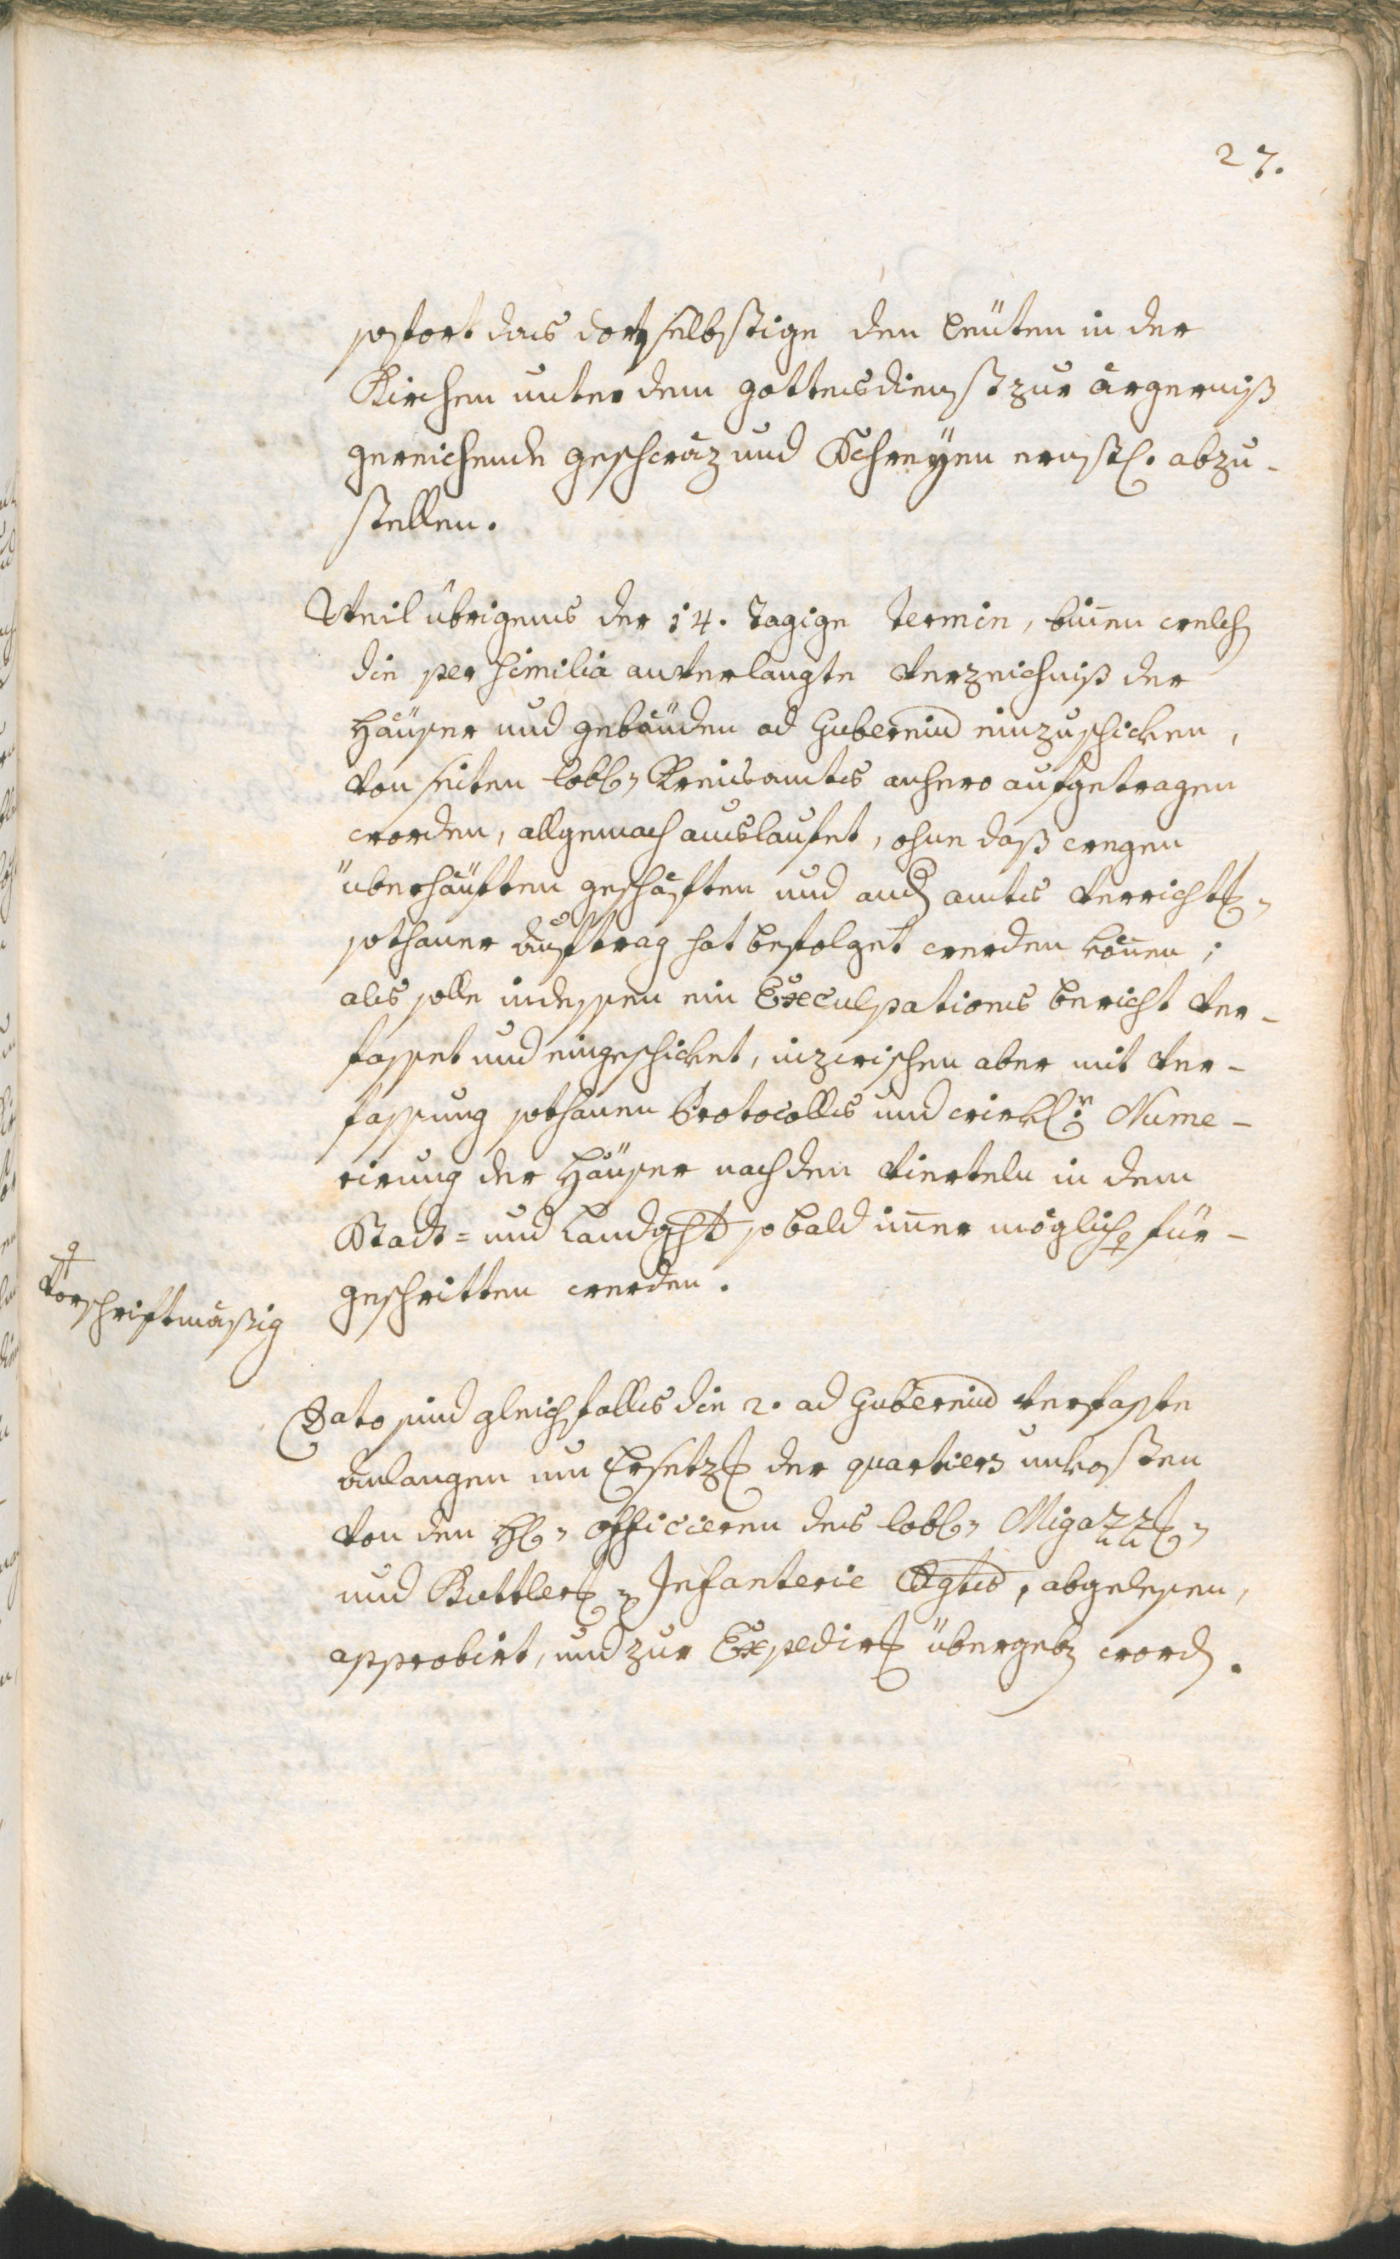 27.
sofort das dortselbstige den Leüten in der
Kirchen unter dem gottesdienst zur ärgerniß
gereichende geschwäz und Schreÿen ernstl. abzu-
stellen.
Weil übrigens der 14. Tägige Termin, biñen welch
die per similia anverlangte Verzeichniß der
Häuser und gebäuden ad Gubernium einzuschicken,
von seiten löbl. Kreisamtes anhero aufgetragen
worden, allgemach auslaufet, ohne daß wegen
überhäuften geschäften und and. amts Verricht.
sothaner Auftrag hat befolget werden köñen;
als solle indessen ein Exculpations bericht ver-
fasset und eingeschicket, inzwischen aber mit ver-
fassung sothanen Protocolls und wirkl.r Nume-
rirung der Häuser nach den Vierteln in dem
Stadt- und Landght sobald iñer möglich für-
geschritten werden.
vorschriftmäßig
Dato sind gleichfalls die 2. ad Gubernium verfaste
Anlangen um Ersetz. der quartiers unkosten
von den H. Officieren des löbl. Migazzi.
und Buttler. Infanterie Rgts, abgelesen,
approbirt, und zur Expedir. übergeb. word.